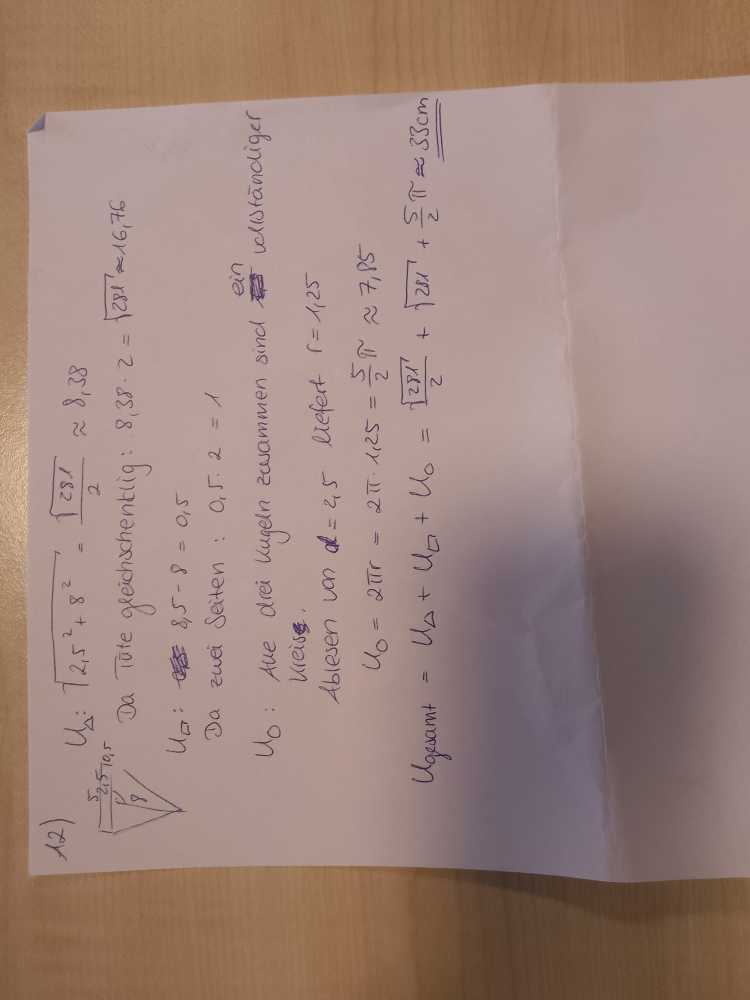 12)
5
2,5 0,5
8
U△: √(2,5² + 8²) = √281/2 ≈ 8,38
Da Tüte gleichschenklig: 8,38 · 2 = √281 ≈ 16,76
U▭: 8,5 - 8 = 0,5
Da zwei Seiten: 0,5 · 2 = 1
U○: Alle drei Kugeln zusammen sind ein vollständiger
Kreis.
Ablesen von d = 2,5 liefert r = 1,25
U○ = 2πr = 2π · 1,25 = 5/2 π ≈ 7,85
Ugesamt = U△ + U▭ + U○ = √281/2 + √281 + 5/2 π ≈ 33cm